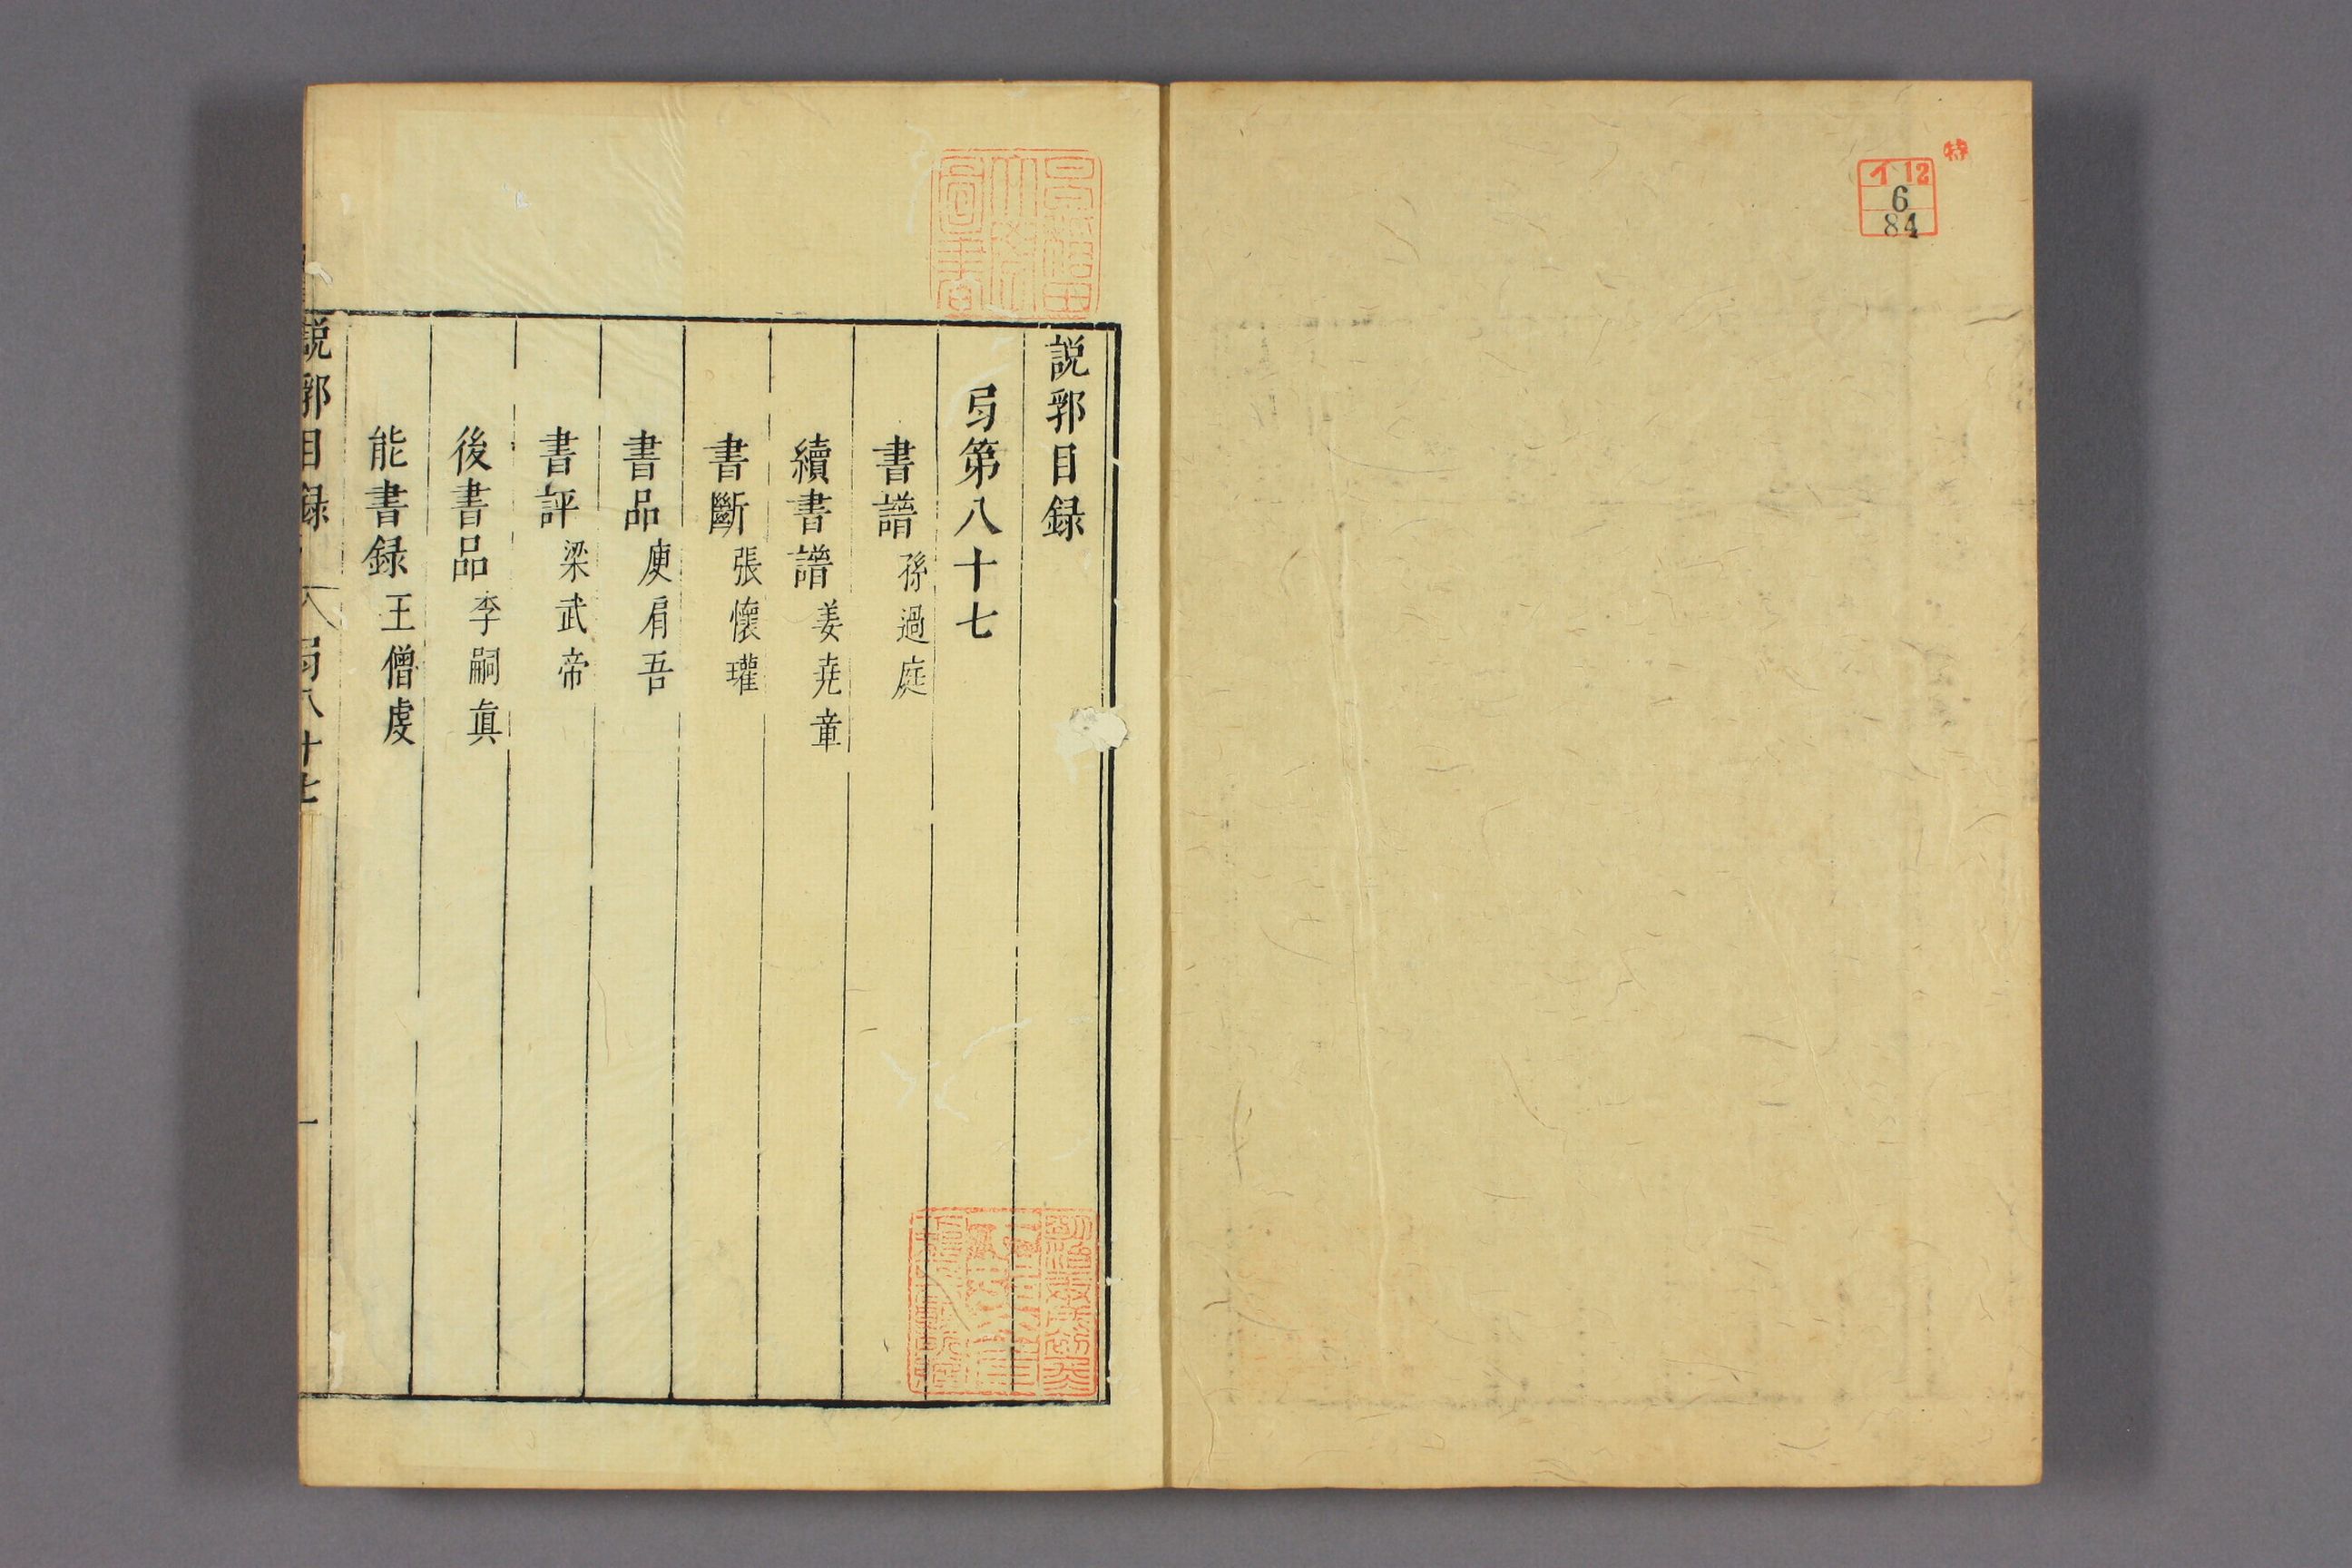 特
イ 12
6
84
説郛目録
弓第八十七
書譜 孫過庭
續書譜 姜堯章
書斷 張懷瓘
書品 庾肩吾
書評 梁武帝
後書品 李嗣真
能書録 王僧虔
説郛目録 弓八十七 一